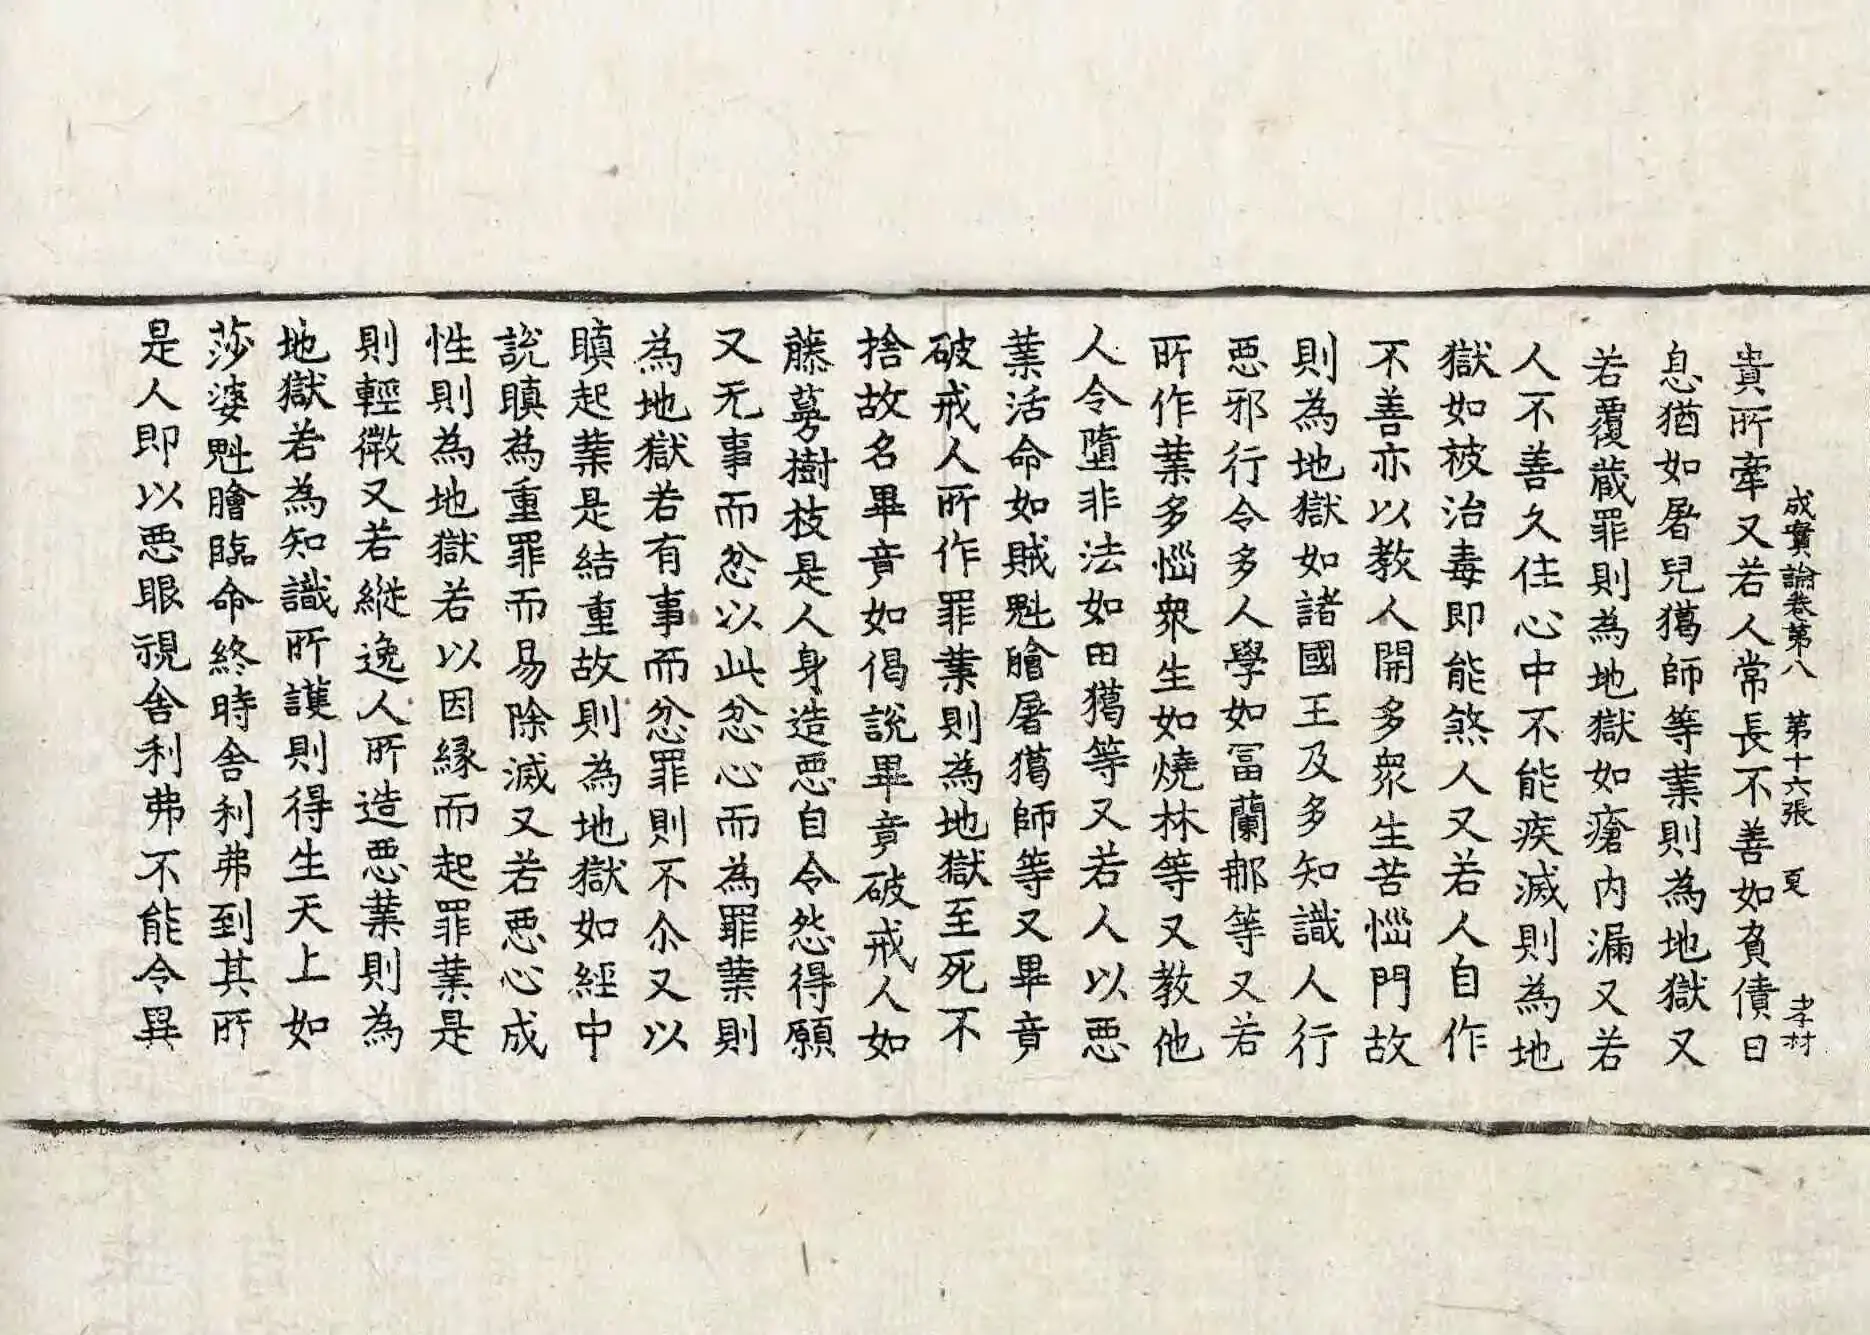 成實論卷第八　第十六張　叓　孝材
貴所牽又若人常長不善如負債日
息猶如屠兒獦師等業則為地獄又
若覆蔵罪則為地獄如瘡内漏又若
人不善久住心中不能疾滅則為地
獄如被治毒即能煞人又若人自作
不善亦以教人開多衆生苦惱門故
則為地獄如諸國王及多知識人行
悪邪行令多人學如冨蘭那等又若
所作業多惱衆生如燒林等又教他
人令墮非法如田獦等又若人以悪
業活命如賊魁膾屠獦師等又畢竟
破戒人所作罪業則為地獄至死不
捨故名畢竟如偈說畢竟破戒人如
藤蔓樹枝是人身造悪自令怨得願
又无事而忿以此忿心而為罪業則
為地獄若有事而忿罪則不尒又以
瞋起業是結重故則為地獄如經中
說瞋為重罪而易除滅又若悪心成
性則為地獄若以因縁而起罪業是
則輕微又若縱逸人所造悪業則為
地獄若為知識所護則得生天上如
莎婆魁膾臨命終時舍利弗到其所
是人即以悪眼視舍利弗不能令異